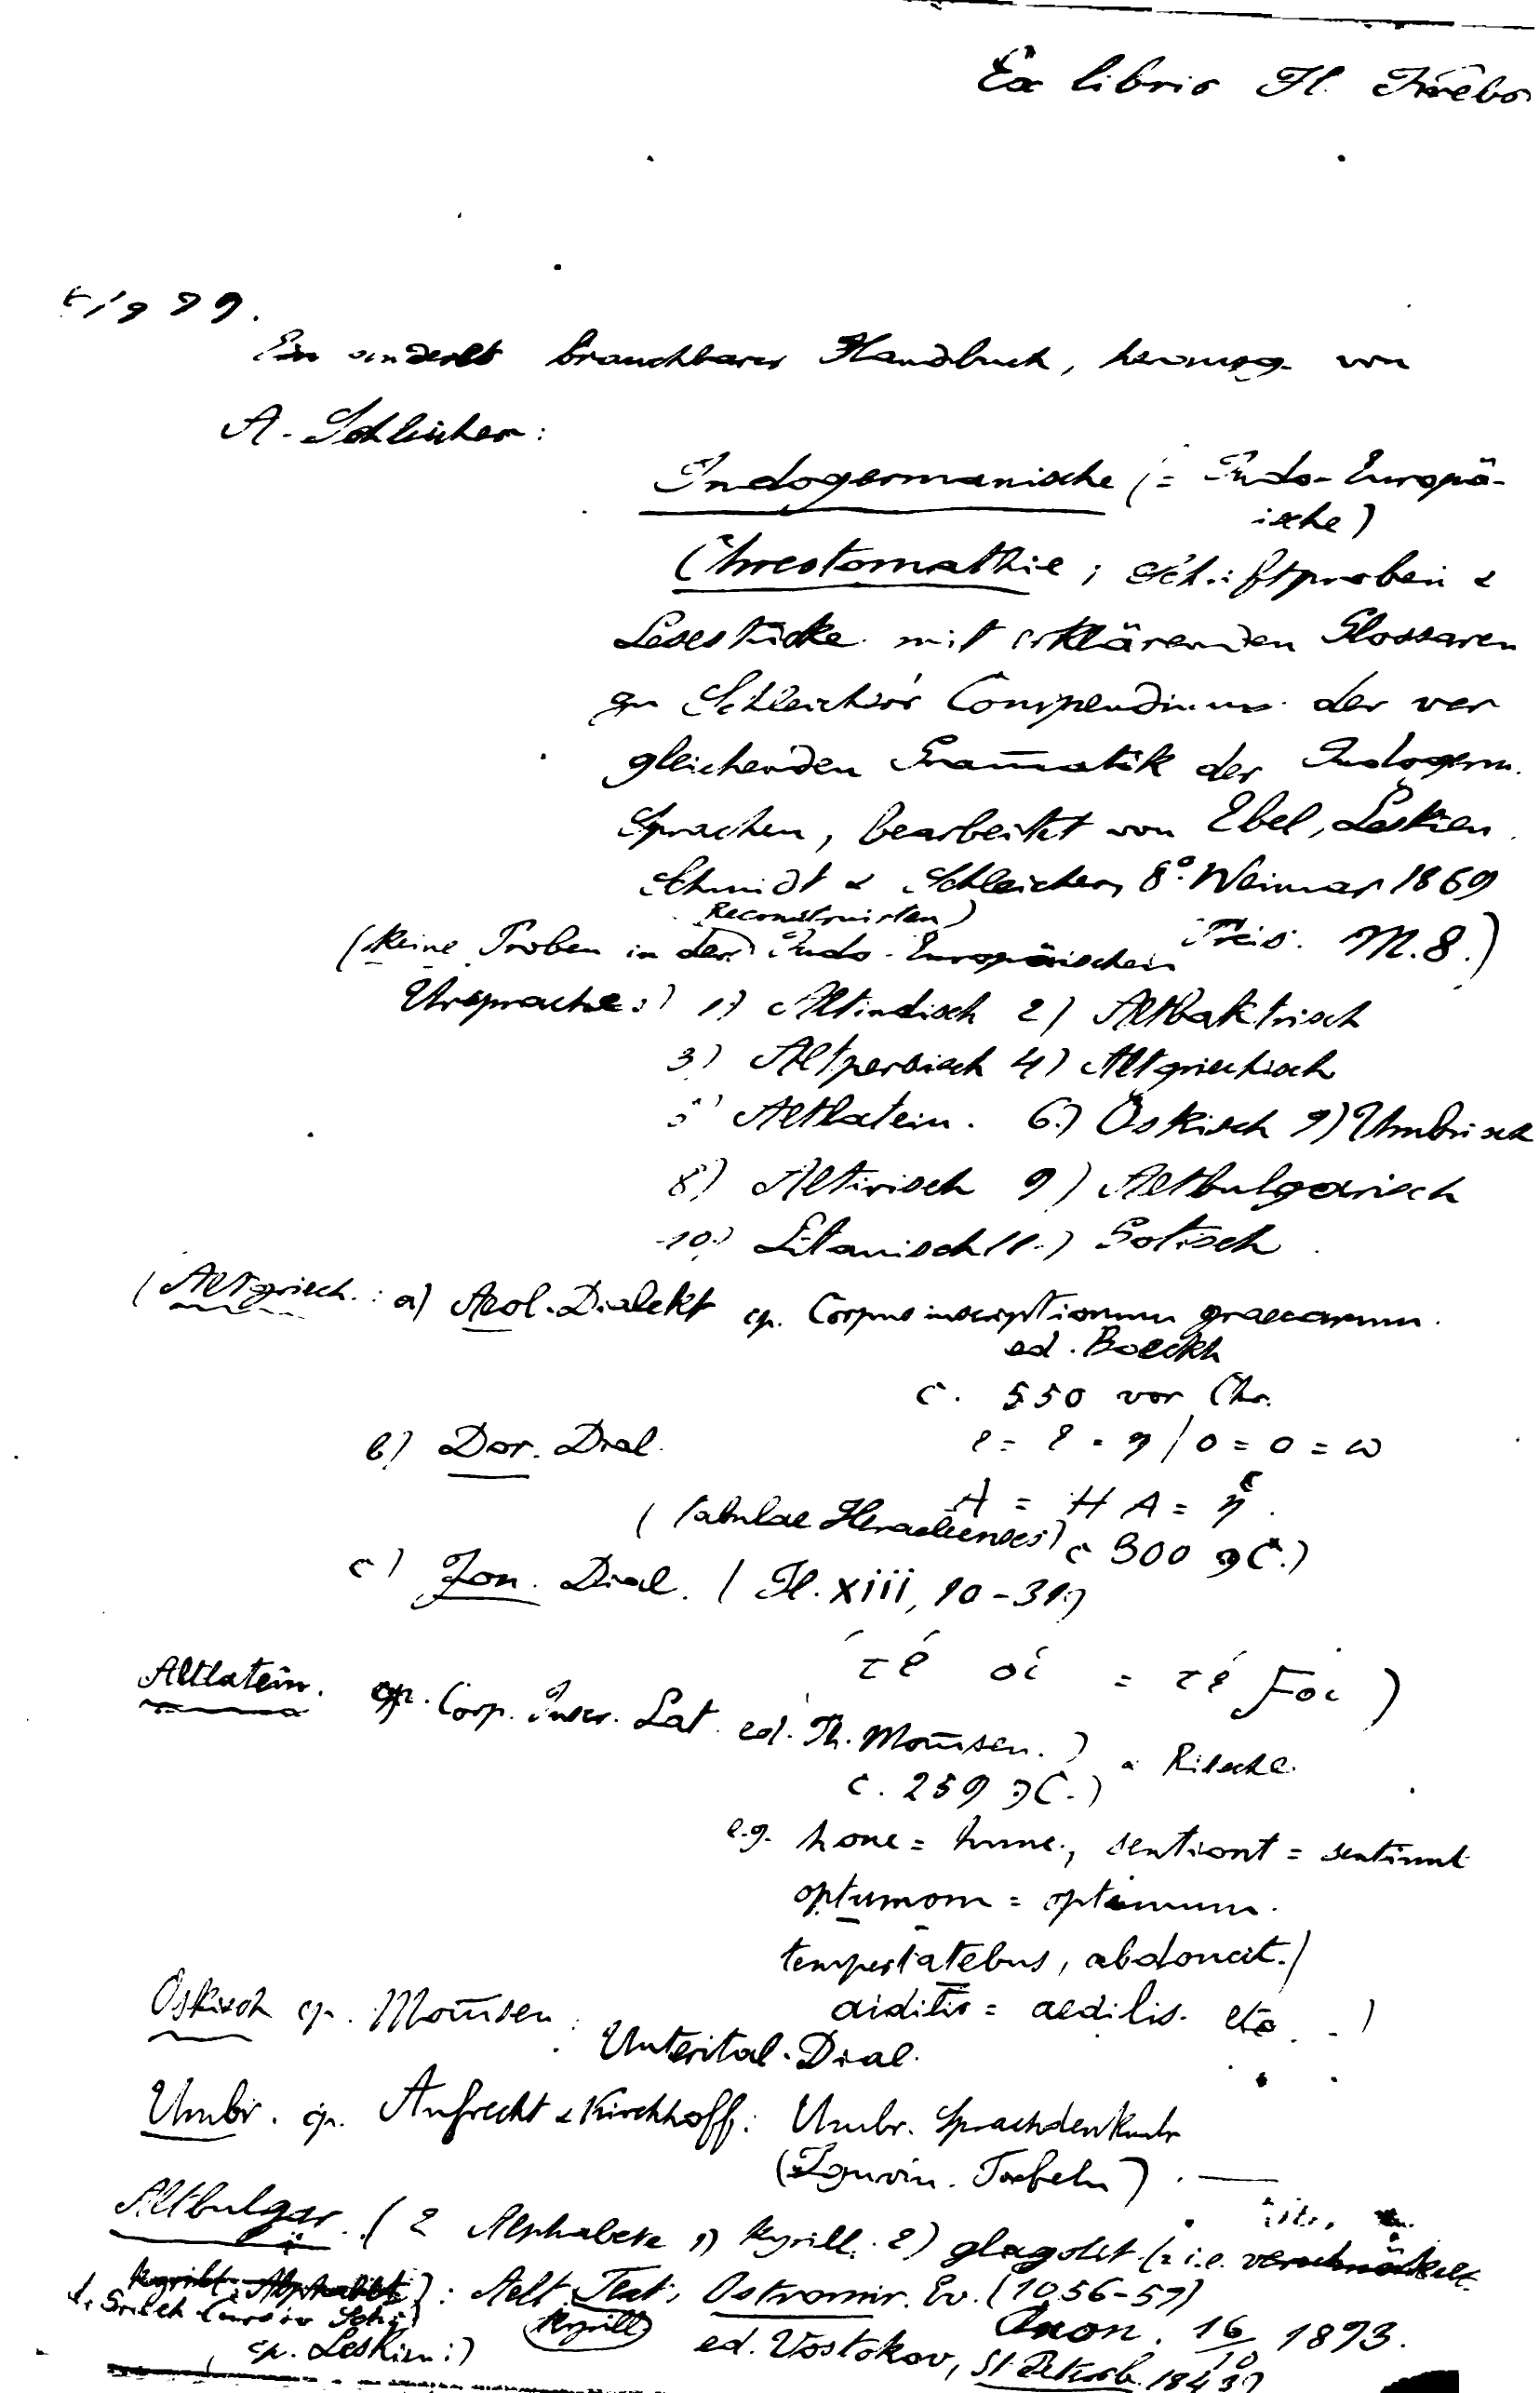 Ex libris H. Krebs
Ein brauchbares Handbuch, herausg. von
A. Schleicher:
Indogermanische (= Indo-Europä-
ische)
Chrestomathie; Schriftproben &
Lesestücke mit erklärenden Glossaren
zu Schleicher's Compendium der ver
gleichenden Gram̄atik der Indogerm.
Sprachen, bearbeitet von Ebel, Leskien
Schmidt & Schleicher, 8º. Weimar 1869
Preis. M. 8.)
Reconstruirten)
(Keine Proben in der Indo-Europäischen
Ursprache:) 1) Altindisch 2) Altbaktrisch
3) Altpersisch 4) Altgriechisch
5) Altlatein. 6.) Oskisch 7) Umbrisch
8) Altirisch 9) Altbulgarisch
10.) Litauisch 11.) Gotisch
(Altgriech.: a) Aeol. Dialekt cp. Corpus inscriptionum graecarum.
ed. Boeckh
c. 550 vor Chr.
b) Dor. Dial. e = ē = η / o = o = ω
A = H A = ἡ
(Tabulae Heracleenses) c 300 C.)
c) Jon. Dial. (Il. xiii, 10-31.)
τέ οἱ = τέ Ϝοι)
Altlatein. cp. Corp. Inscr. Lat. ed. Th. Mom̄sen.) & Ritschl.
c. 259 C.)
e.g. honc = hunc, sentiont = sentiunt
optumom = optimum.
tempestatebus, abdoucit.)
aidilis = aedilis. etc. )
Oskisch cp. Mom̄sen:
Unterital. Dial.
Umbr. cp. Aufrecht & Kirchhoff: Umbr. Sprachdenkmäler
(Iguvin. Tafeln).
Altbulgar. (2 Alphabete 1) Kyrill. 2) glagolit (: i.e. verschnörkelt.
Kyrill. Alphabet): Aelt. Text: Ostromir. Ev. (1056-57)
d. Griech. Cursiv Schr.) (Kyrill) ed. Vostokov, St Petersb. 1843)
cp. Leskien:)
Oxon. 16/10 1893.